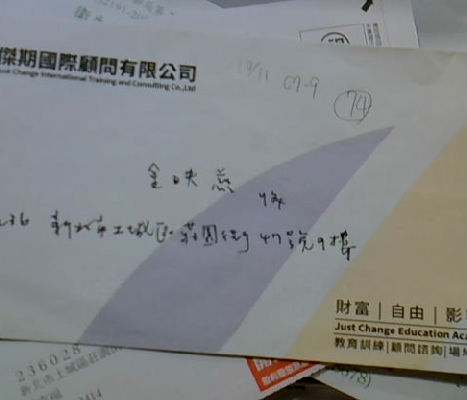 傑期國際顧問有限公司
Just Change International Training and Consulting Co.,Ltd
12/11 07-9
74
金映燕 收
236 新北市土城區莊園街47號9樓
財富 | 自由 | 影
Just Change Education Aca
教育訓練|顧問諮詢|場
236028
新北市土城區莊